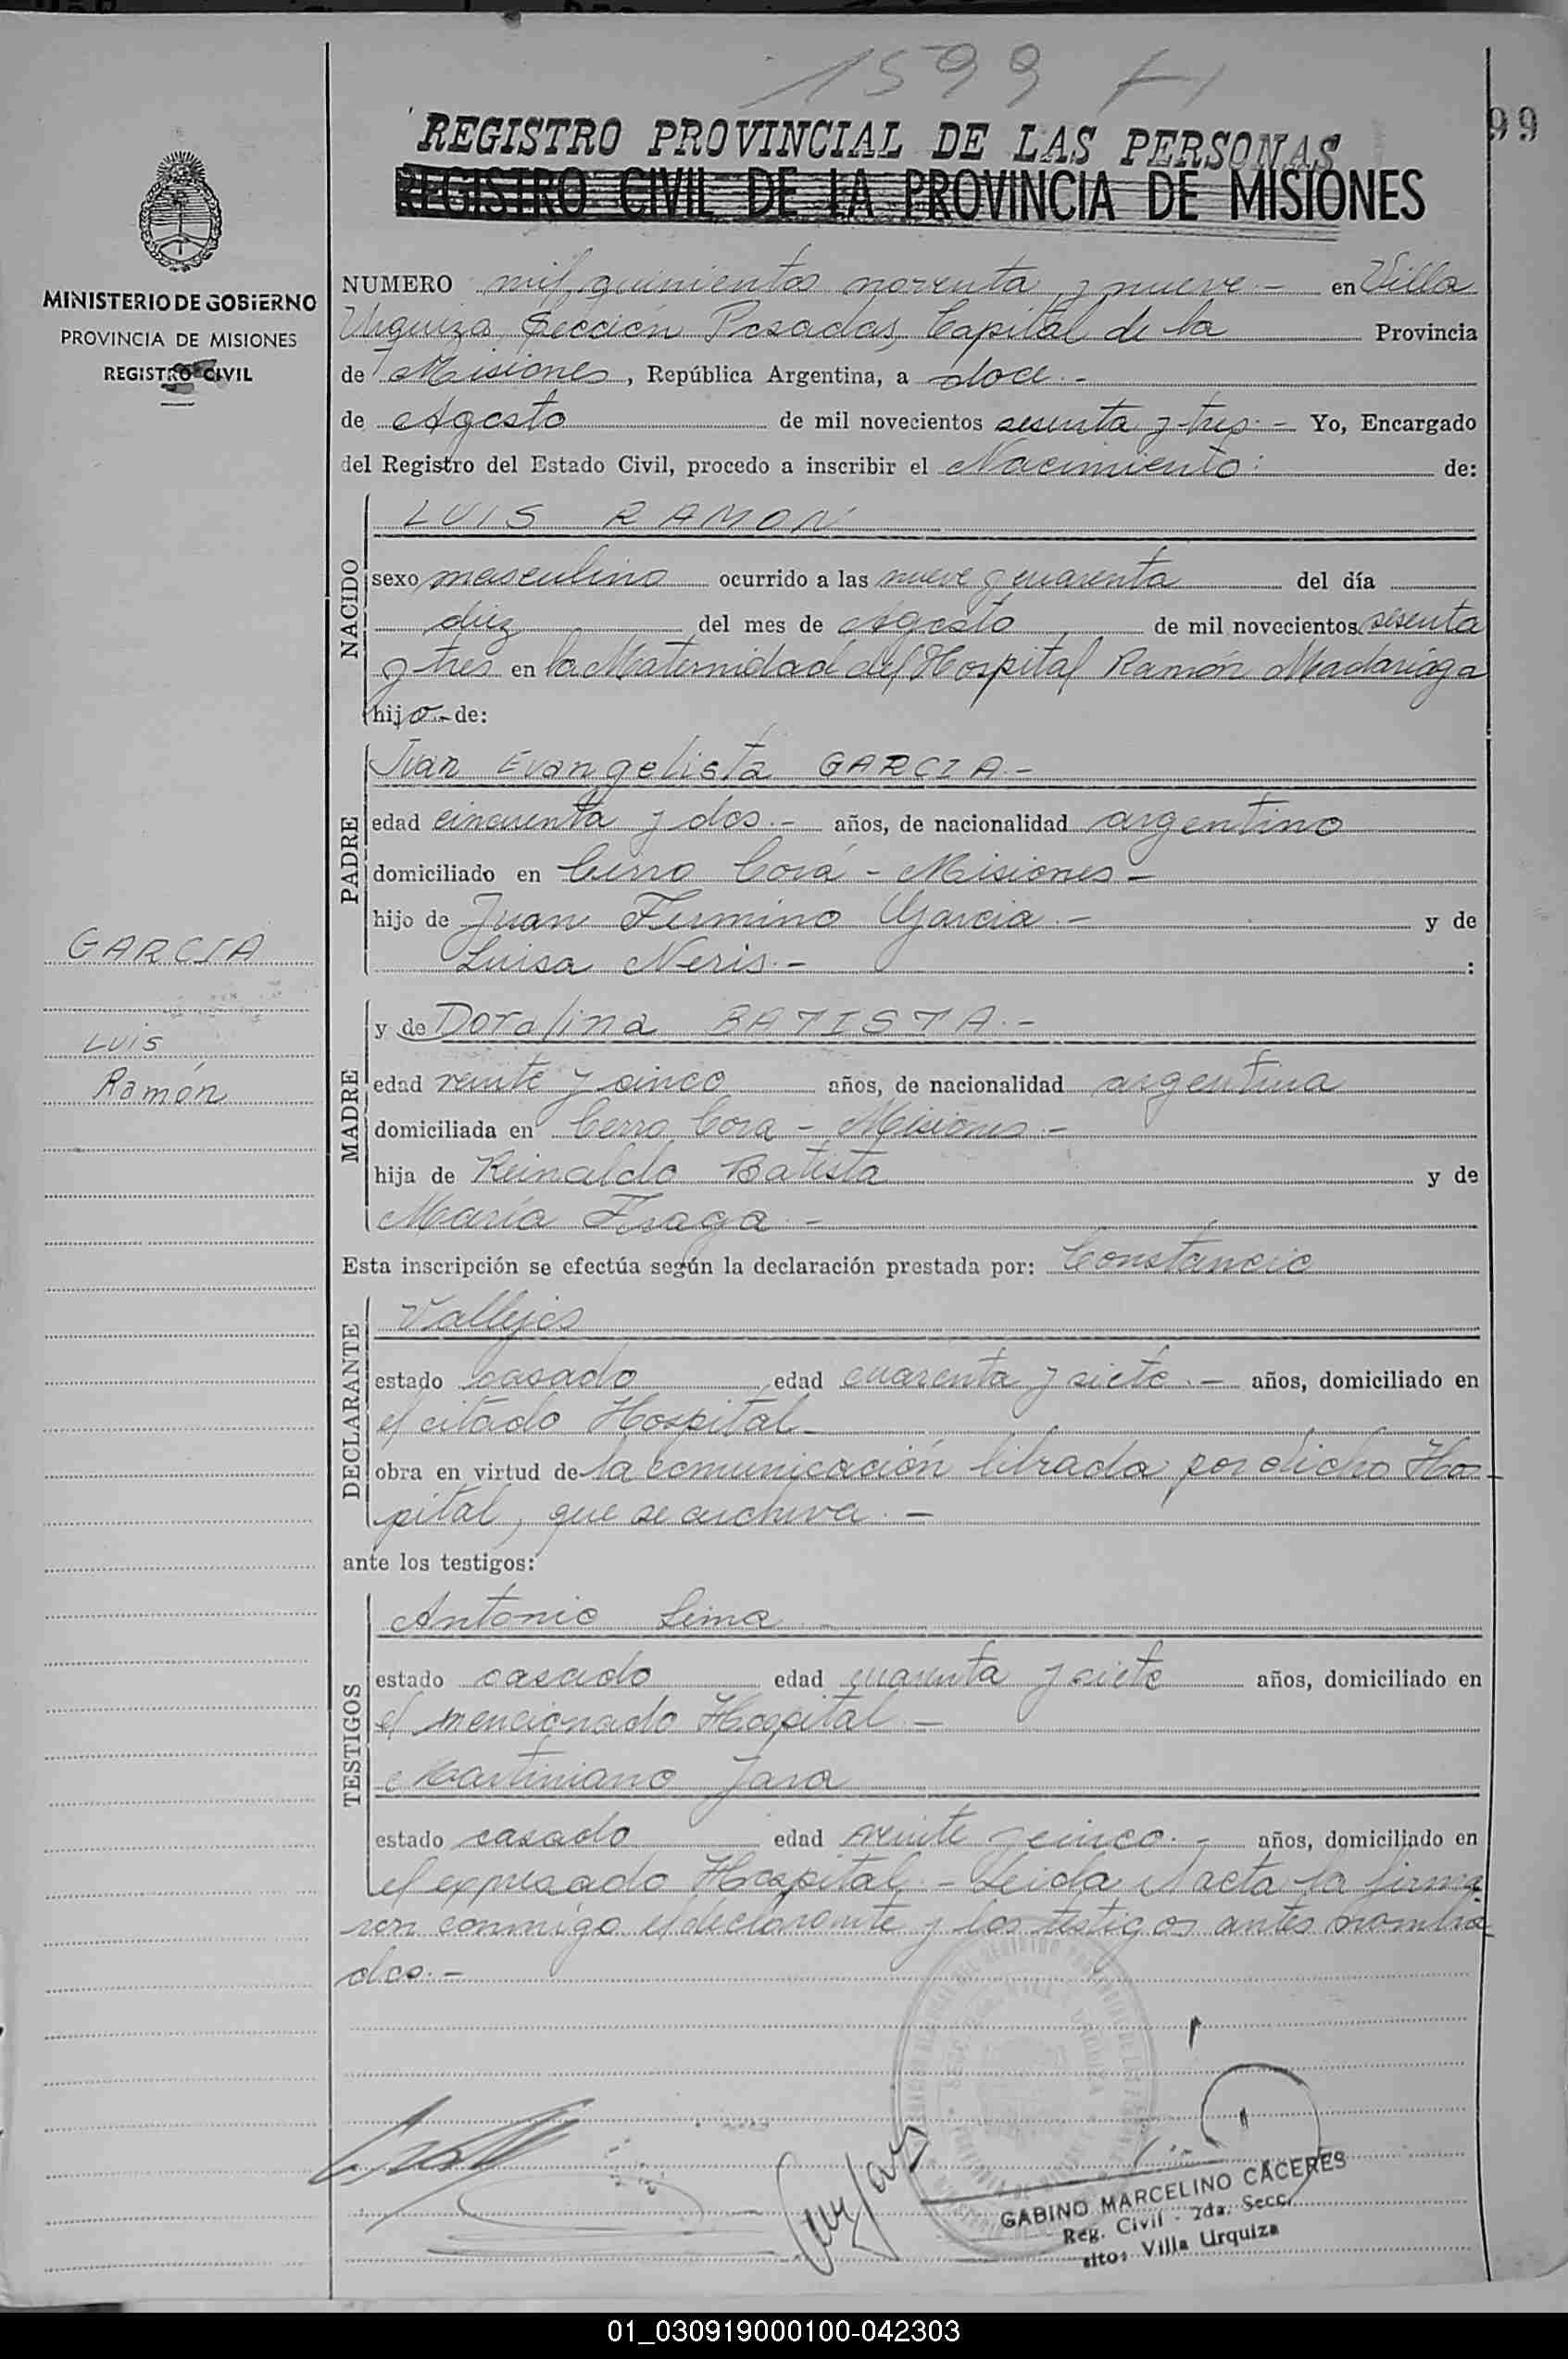 1599
99
REGISTRO PROVINCIAL DE LAS PERSONAS
REGISTRO CIVIL DE LA PROVINCIA DE MISIONES
MINISTERIO DE GOBIERNO
PROVINCIA DE MISIONES
REGISTRO CIVIL
NUMERO mil quinientos noventa y nueve.- en Villa
Urquiza, Sección Posadas, Capital de la Provincia
de Misiones, República Argentina, a doce.-
de Agosto de mil novecientos sesenta y tres.- Yo, Encargado
del Registro del Estado Civil, procedo a inscribir el Nacimiento: de:
NACIDO
LUIS RAMON
sexo masculino ocurrido a las nueve y cuarenta del día
diez del mes de Agosto de mil novecientos sesenta
y tres en la Maternidad del Hospital Ramón Madariaga
hijo.- de:
PADRE
Juan Evangelista GARCIA.-
edad cincuenta y dos.- años, de nacionalidad argentino
domiciliado en Cerro Corá - Misiones -
hijo de Juan Fermino Garcia.- y de
Luisa Neris.- :
GARCIA
LUIS
Ramón
MADRE
y de Doralina BATISTA.-
edad veinte y cinco años, de nacionalidad argentina
domiciliada en Cerro Cora - Misiones.-
hija de Reinaldo Batista y de
María Fraga.-
Esta inscripción se efectúa según la declaración prestada por: Constáncio
DECLARANTE
Vallejos
estado casado edad cuarenta y siete.- años, domiciliado en
el citado Hospital-
obra en virtud de la comunicación librada por dicho Hos-
pital, que se archiva.-
ante los testigos:
TESTIGOS
Antonio Lima
estado casado edad cuarenta y siete años, domiciliado en
el mencionado Hospital -
Martiniano Jara
estado casado edad veinte y cinco.- años, domiciliado en
el expresado Hospital.- Leida el acta la firma-
ron conmigo el declarante y los testigos antes nombra-
dos.-
GABINO MARCELINO CACERES
Reg. Civil - 2da. Secc.
Villa Urquiza
01_030919000100-042303